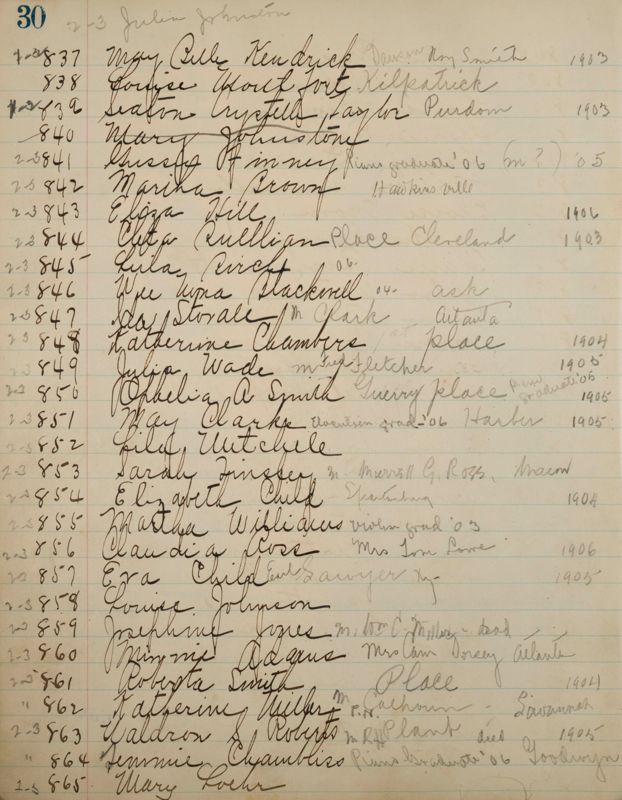 30 2-3 Julia Johnston
2-3 837 May Belle Kendrick Dawson Roy Smith 1903
838 Louise Kilpatrick
1-2 839 Seaton Crystelle Taylor Purdom 1903
840 Mary Johnstone
2-3 841 Gussie Piano graduate '06 (m?) '05
2-3 842 Martha Brown Hawkinsville
2-3 843 Eliza Hill 1906
2-3 844 Cleta Place Cleveland 1903
2-3 845 Lula Birch 06.
2-3 846 Wee Nona Blackwell 04- ask
2-3 847 Ida Stovall M Clark Atlanta
2-3 848 Katherine Chambers place 1904
2-3 849 Julia Wade m Fred Fletcher 1905
2-3 850 Ophelia A Smith Guerry place Piano graduate '05 1905
2-3 851 May Clarke Elocution grad-'06 Harber 1905
2-3 852 Lila Mitchell
2-3 853 Sarah m. Merrell G. Ross, Macon
2-3 854 Elizabeth Child Spartanburg 1904
2-3 855 Martha Williams violin grad '03
2-3 856 Claudia Ross Mrs Tom Lowe 1906
2-3 857 Eva Child Earl Sawyer Ky- 1905
2-3 858 Louise Johnson
2-3 859 Josephine Jones m. Wm C. Miller - dead
2-3 860 Minnie Adams Mrs Cam Dorsey Atlanta
2-3 861 Roberta Smith Place 1904
" 862 Katherine Miller M P.H. Calhoun - Savannah
2-3 863 Waldron S. Roberts m R.H Plant died 1905
" 864 Jemmie Chambliss Piano Graduate '06 Goodwyn
2-3 865 Mary Loehr